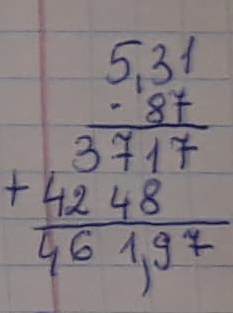 5,31
· 87
3717
+ 4248
461,97